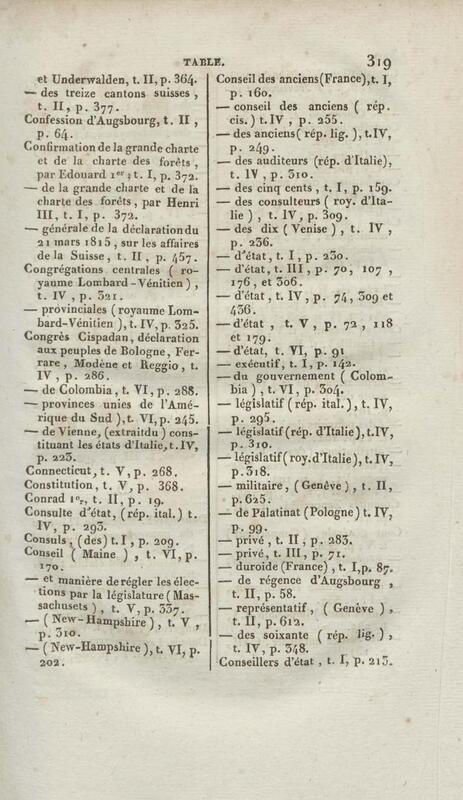 TABLE. 319
et Underwalden, t. II, p. 364.
— des treize cantons suisses,
t. II, p. 377.
Confession d'Augsbourg, t. II,
p. 64.
Confirmation de la grande charte
et de la charte des forêts,
par Edouard 1er; t. I, p. 372.
— de la grande charte et de la
charte des forêts, par Henri
III, t. I, p. 372.
— générale de la déclaration du
21 mars 1815, sur les affaires
de la Suisse, t. II, p. 457.
Congrégations centrales (ro-
yaume Lombard-Vénitien),
t. IV, p. 321.
— provinciales (royaume Lom-
bard-Vénitien), t. IV, p. 325.
Congrès Cispadan, déclaration
aux peuples de Bologne, Fer-
rare, Modène et Reggio, t.
IV, p. 286.
— de Colombia, t. VI, p. 288.
— provinces unies de l'Amé-
rique du Sud), t. VI, p. 245.
— de Vienne, (extrait du) cons-
tituant les états d'Italie, t. IV,
p. 223.
Connecticut, t. V, p. 268.
Constitution, t. V, p. 368.
Conrad 1er, t. II, p. 19.
Consulte d'état, (rép. ital.) t.
IV, p. 293.
Consuls, (des) t. I, p. 209.
Conseil (Maine), t. VI, p.
170.
— et manière de régler les élec-
tions par la législature (Mas-
sachusets), t. V, p. 337.
— (New-Hampshire), t. V,
p. 310.
— (New-Hampshire), t. VI, p.
202.
Conseil des anciens (France), t. I,
p. 160.
— conseil des anciens (rép.
cis.) t. IV, p. 255.
— des anciens (rép. lig.), t. IV,
p. 249.
— des auditeurs (rép. d'Italie),
t. IV, p. 310.
— des cinq cents, t. I, p. 159.
— des consulteurs (roy. d'Ita-
lie), t. IV, p. 309.
— des dix (Venise), t. IV,
p. 236.
— d'état, t. I, p. 230.
— d'état, t. III, p. 70, 107,
176, et 306.
— d'état, t. IV, p. 74, 309 et
436.
— d'état, t. V, p. 72, 118
et 179.
— d'état, t. VI, p. 91
— exécutif, t. I, p. 142.
— du gouvernement (Colom-
bia), t. VI, p. 304.
— législatif (rép. ital.), t. IV,
p. 295.
— législatif (rép. d'Italie), t. IV,
p. 310.
— législatif (roy. d'Italie), t. IV,
p. 318.
— militaire, (Genève), t. II,
p. 625.
— de Palatinat (Pologne) t. IV,
p. 99.
— privé, t. II, p. 283.
— privé, t. III, p. 71.
— du roide (France), t. I, p. 87.
— de régence d'Augsbourg,
t. II, p. 58.
— représentatif, (Genève),
t. II, p. 612.
— des soixante (rép. lig.),
t. IV, p. 348.
Conseillers d'état, t. I, p. 213.